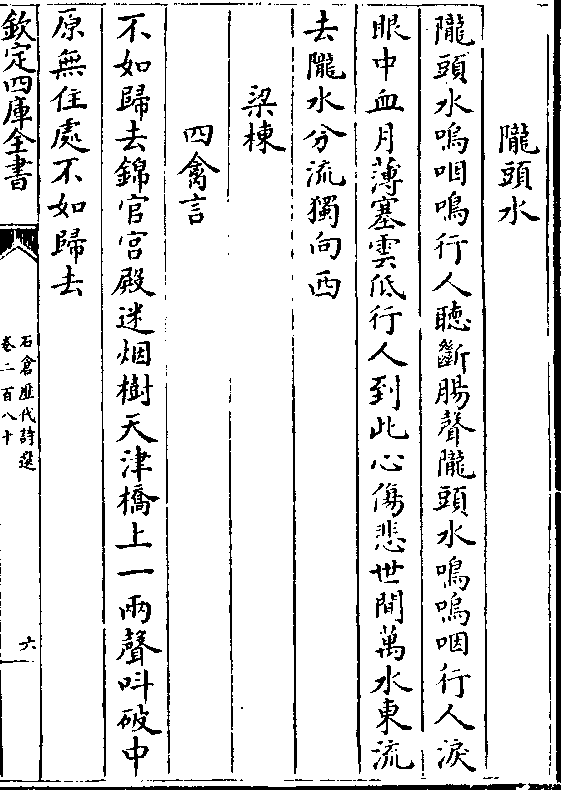 隴頭水
隴頭水嗚咽鳴行人聽斷腸聲隴頭水鳴嗚咽行人淚
眼中血月薄塞雲低行人到此心傷悲世間萬水東流
去隴水分流獨向西
梁棟
四禽言
不如歸去錦官宮殿迷烟樹天津橋上一兩聲叫破中
原無住處不如歸去
欽定四庫全書
石倉歷代詩選
卷二百八十
六